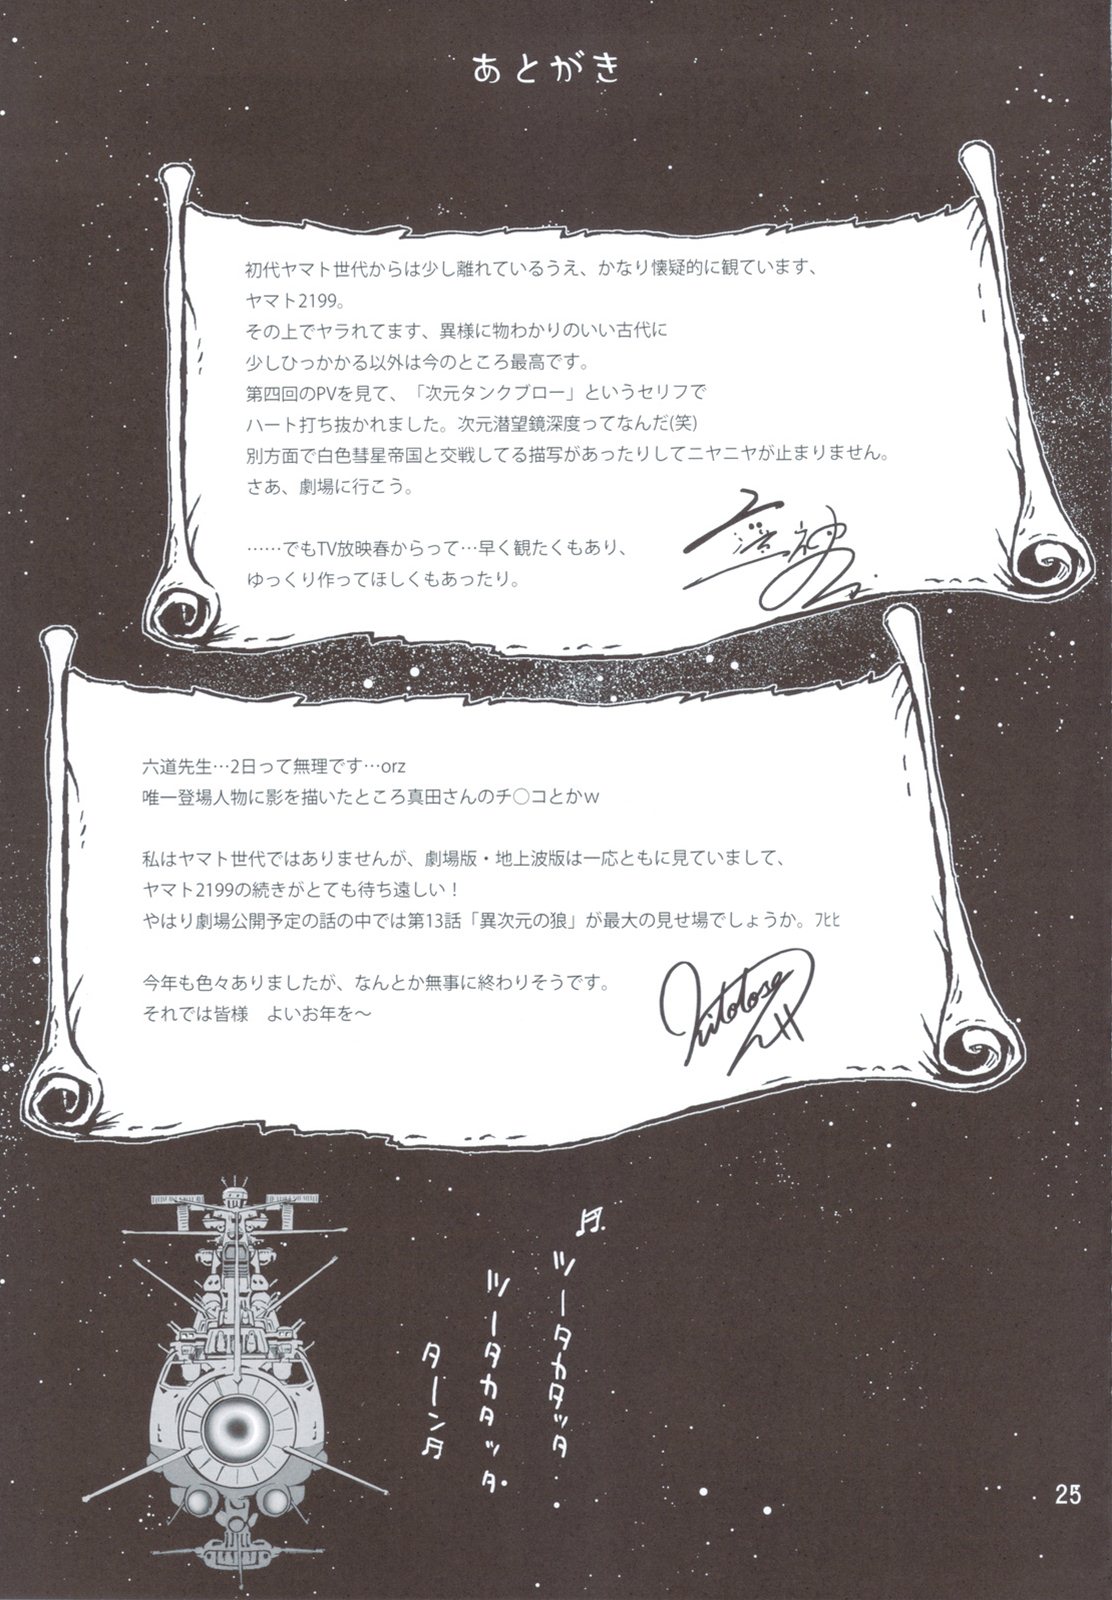 あとがき
初代ヤマト世代からは少し離れているうえ、かなり懐疑的に観ています、
ヤマト2199。
その上でヤラれてます、異様に物わかりのいい古代に
少しひっかかる以外は今のところ最高です。
第四回のPVを見て、「次元タンクブロー」というセリフで
ハート打ち抜かれました。次元潜望鏡深度ってなんだ(笑)
別方面で白色彗星帝国と交戦してる描写があったりしてニヤニヤが止まりません。
さあ、劇場に行こう。
……でもTV放映春からって…早く観たくもあり、
ゆっくり作ってほしくもあったり。
六道先生…2日って無理です…orz
唯一登場人物に影を描いたところ真田さんのチ○コとかw
私はヤマト世代ではありませんが、劇場版・地上波版は一応ともに見ていまして、
ヤマト2199の続きがとても待ち遠しい！
やはり劇場公開予定の話の中では第13話「異次元の狼」が最大の見せ場でしょうか。ﾌﾋﾋ
今年も色々ありましたが、なんとか無事に終わりそうです。
それでは皆様　よいお年を～
♬ ツータカタッタ
ツータカタッタ
ターン♬
25